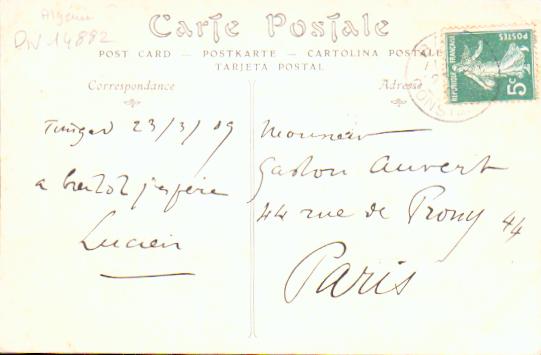 Algérie
DIV 14882
Carte Postale
POST CARD — POSTKARTE — CARTOLINA POSTALE
TARJETA POSTAL
Correspondance
Adresse
REPUBLIQUE FRANÇAISE
5c
POSTES
Timgad 23/3/09
a bientot j'espère
Lucien
Monsieur
Gaston Auvert
44 rue de Prony 44
Paris